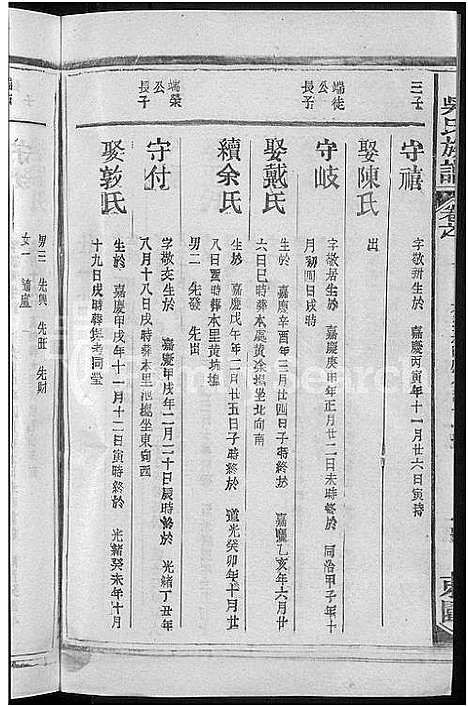 吳氏族譜
三子
守禧
字敬新生於 嘉慶丙寅年十一月廿六日寅時
娶陳氏
出
端徒公長子
守岐
字敬居生於 嘉慶庚申年正月廿二日未時終於 同治甲子年十
月初四日戌時
娶戴氏
生於 嘉慶辛酉年三月廿四日子時終於 嘉慶乙亥年六月廿
六日巳時葬本處黃涂塭坐北向南
續余氏
生於 嘉慶戊午年二月廿五日子時終於 道光癸卯年十月廿
八日寅時葬本里黃坑塭
男二 先發 先出
端榮公長子
守付
字敬友生於 嘉慶甲戌年二月二十日辰時終於 光緒丁丑年
八月十八日戌時葬本里池塭坐東向西
娶敦氏
生於 嘉慶甲戌年十一月十二日寅時終於 光緒癸未年十月
十九日戌時葬與考同塋
男三 先興 先旺 先財
女一